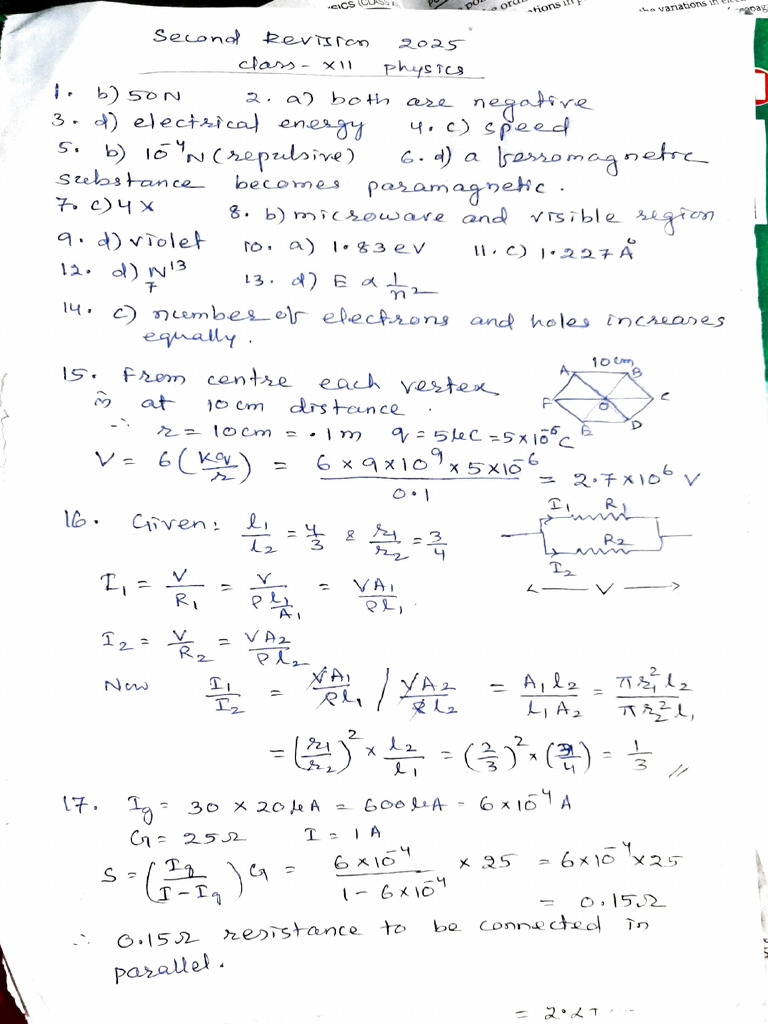 EICS (CLASS
tions in
the variations in
Second Revision 2025
class - XII physics
1. b) 50N 2. a) both are negative
3. d) electrical energy 4. c) speed
5. b) 10⁻⁴N (repulsive) 6. d) a ferromagnetic
substance becomes paramagnetic.
7. c) 4x 8. b) microwave and visible region
9. d) violet 10. a) 1.83 eV 11. c) 1.227 Å
12. d) ₇N¹³ 13. d) E ∝ 1/n²
14. c) number of electrons and holes increases
equally.
15. From centre each vertex
is at 10 cm distance.
A 10cm B
F O C
E D
∴ r = 10cm = .1m q = 5μC = 5×10⁻⁶C
V = 6(kq/r) = 6 × 9×10⁹ × 5×10⁻⁶ / 0.1 = 2.7×10⁶ V
16. Given: l₁/l₂ = 4/3 & r₁/r₂ = 3/4
I₁ R₁
R₂
I₂
<— V —>
I₁ = V/R₁ = V/(ρ l₁/A₁) = VA₁/ρl₁
I₂ = V/R₂ = VA₂/ρl₂
Now I₁/I₂ = VA₁/ρl₁ / VA₂/ρl₂ = A₁l₂/l₁A₂ = πr₁²l₂/πr₂²l₁
= (r₁/r₂)² × l₂/l₁ = (2/3)² × (3/4) = 1/3 //
17. Ig = 30 × 20μA = 600μA = 6×10⁻⁴ A
G = 25Ω I = 1A
S = (Ig/(I-Ig)) G = 6×10⁻⁴/(1 - 6×10⁻⁴) × 25 = 6×10⁻⁴×25
= 0.15Ω
∴ 0.15Ω resistance to be connected in
parallel.